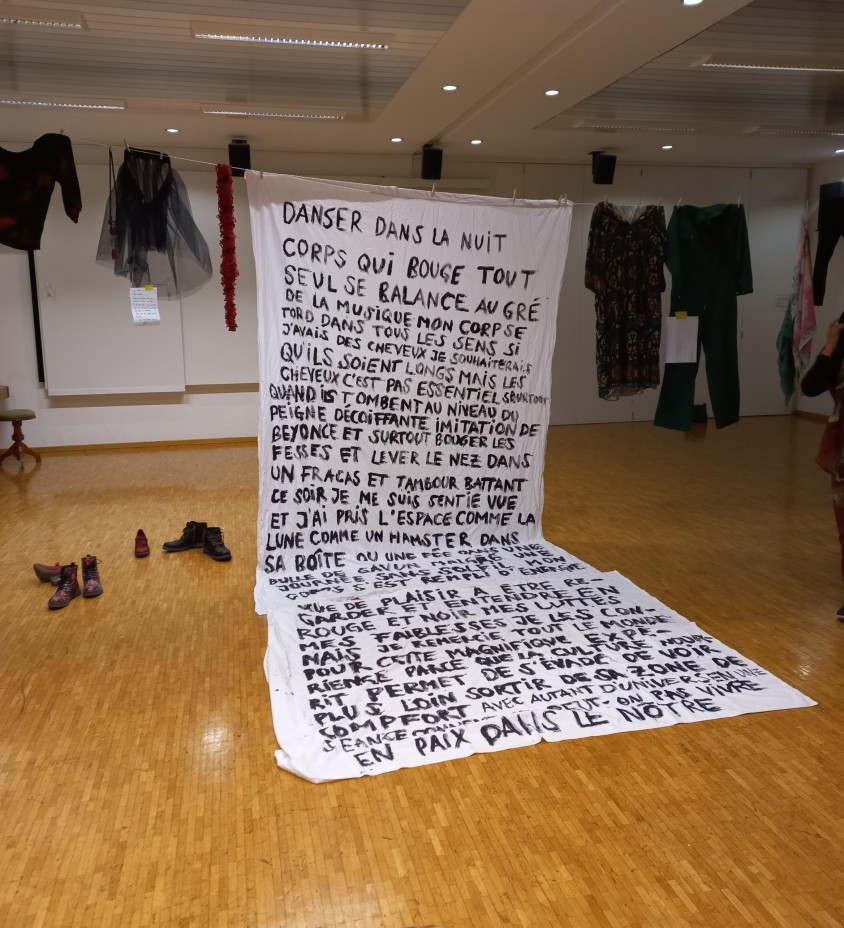 DANSER DANS LA NUIT
CORPS QUI BOUGE TOUT
SEUL SE BALANCE AU GRÉ
DE LA MUSIQUE MON CORPS SE
TORD DANS TOUS LES SENS SI
J'AVAIS DES CHEVEUX JE SOUHAITERAIS
QU'ILS SOIENT LONGS MAIS LES
CHEVEUX C'EST PAS ESSENTIEL SURTOUT
QUAND ILS TOMBENT AU NIVEAU DU
PEIGNE DÉCOIFFANTE IMITATION DE
BEYONCE ET SURTOUT BOUGER LES
FESSES ET LEVER LE NEZ DANS
UN FRACAS ET TAMBOUR BATTANT
CE SOIR JE ME SUIS SENTIE VUE
ET J'AI PRIS L'ESPACE COMME LA
LUNE COMME UN HAMSTER DANS
SA BOÎTE OU UNE FÉE DANS UNE
BULLE DE SAVON MALGRÉ UNE
JOURNÉE SANS SOLEIL MON
CORPS S'EST REMPLI D'ÉNERGIE
VUE DE PLAISIR A ETRE RE-
GARDER ET ENTENDRE EN
ROUGE ET NOIR MES LUTTES
MES FAIBLESSES JE LES CON-
NAIS JE REMERCIE TOUT LE MONDE
POUR CETTE MAGNIFIQUE EXPÉ-
RIENCE PARCE QUE LA CULTURE NOUR-
RIT PERMET DE S'ÉVADÉ DE VOIR
PLUS LOIN SORTIR DE SA ZONE DE
COMDFORT AVEC AUTANT D'UNIVERS EN UNE
SÉANCE PEUT-ON PAS VIVRE
EN PAIX DANS LE NÔTRE